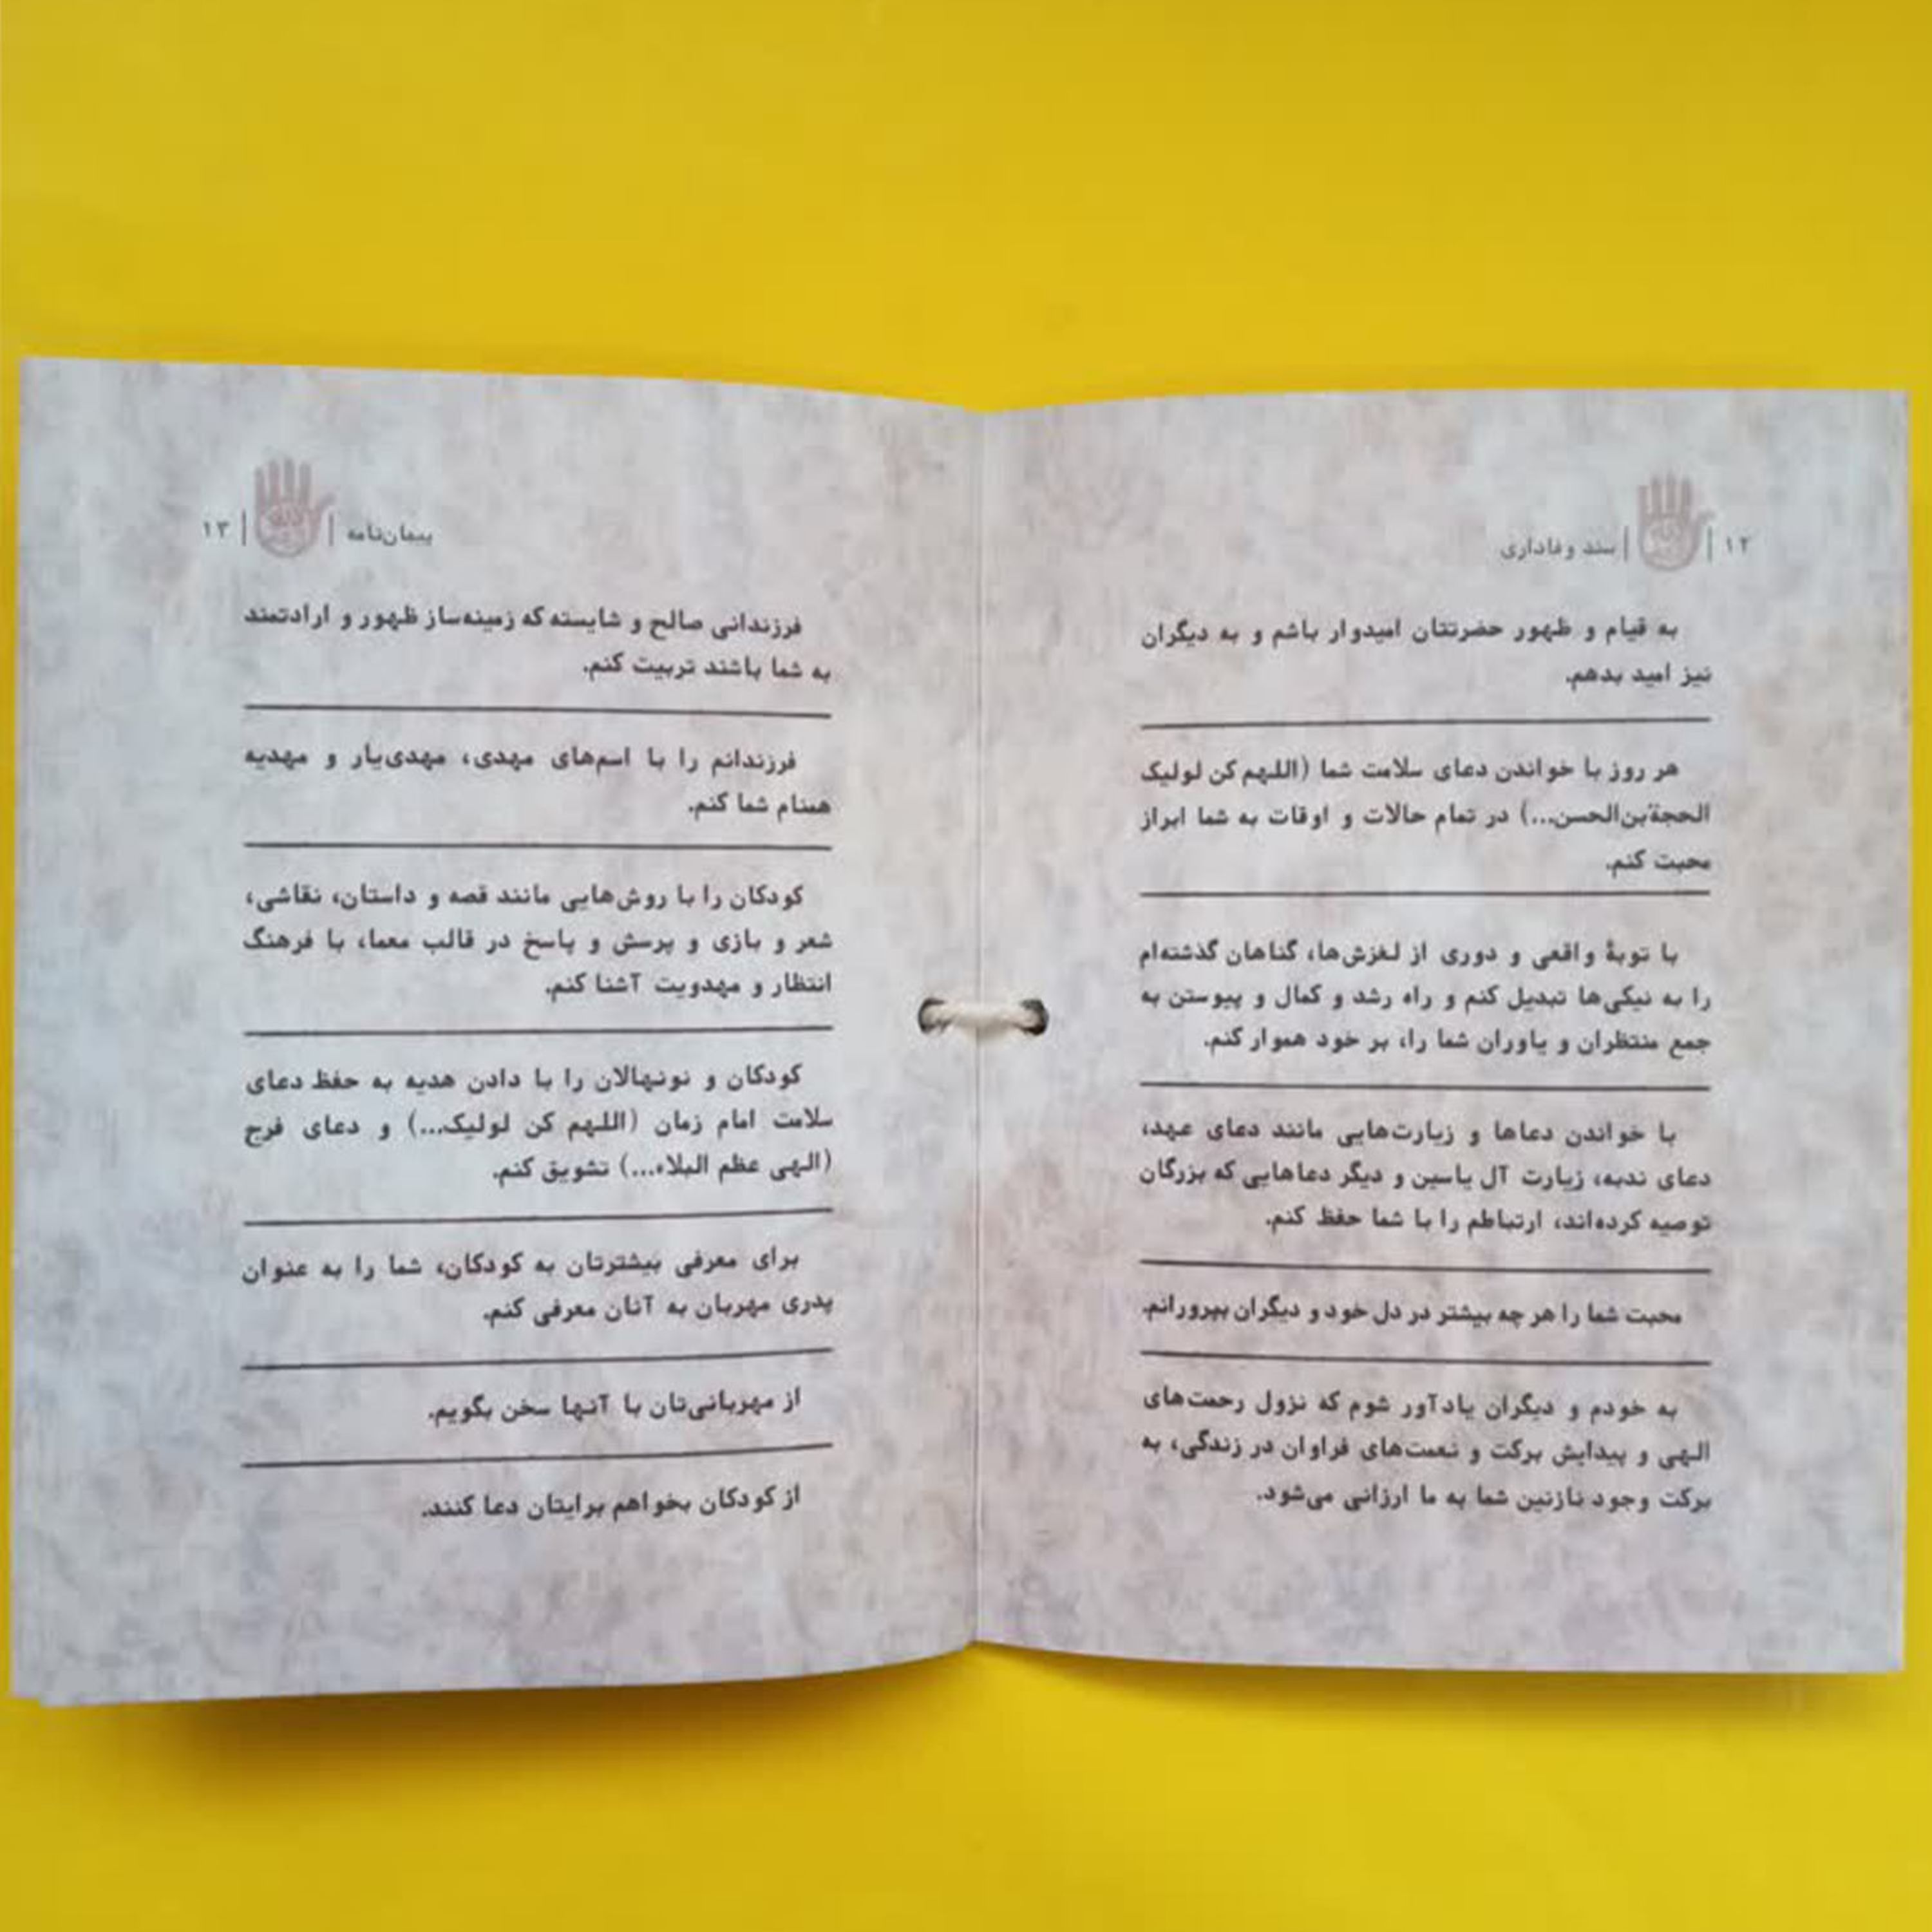 ۱۲ | | سند وفاداری
به قیام و ظهور حضرتتان امیدوار باشم و به دیگران
نیز امید بدهم.
هر روز با خواندن دعای سلامت شما (اللهم کن لولیک
الحجةبن‌الحسن...) در تمام حالات و اوقات به شما ابراز
محبت کنم.
با توبهٔ واقعی و دوری از لغزش‌ها، گناهان گذشته‌ام
را به نیکی‌ها تبدیل کنم و راه رشد و کمال و پیوستن به
جمع منتظران و یاوران شما را، بر خود هموار کنم.
با خواندن دعاها و زیارت‌هایی مانند دعای عهد،
دعای ندبه، زیارت آل یاسین و دیگر دعاهایی که بزرگان
توصیه کرده‌اند، ارتباطم را با شما حفظ کنم.
محبت شما را هر چه بیشتر در دل خود و دیگران بپرورانم.
به خودم و دیگران یادآور شوم که نزول رحمت‌های
الهی و پیدایش برکت و نعمت‌های فراوان در زندگی، به
برکت وجود نازنین شما به ما ارزانی می‌شود.
پیمان‌نامه | | ۱۳
فرزندانی صالح و شایسته که زمینه‌ساز ظهور و ارادتمند
به شما باشند تربیت کنم.
فرزندانم را با اسم‌های مهدی، مهدی‌یار و مهدیه
همنام شما کنم.
کودکان را با روش‌هایی مانند قصه و داستان، نقاشی،
شعر و بازی و پرسش و پاسخ در قالب معما، با فرهنگ
انتظار و مهدویت آشنا کنم.
کودکان و نونهالان را با دادن هدیه به حفظ دعای
سلامت امام زمان (اللهم کن لولیک...) و دعای فرج
(الهی عظم البلاء...) تشویق کنم.
برای معرفی بیشترتان به کودکان، شما را به عنوان
پدری مهربان به آنان معرفی کنم.
از مهربانی‌تان با آنها سخن بگویم.
از کودکان بخواهم برایتان دعا کنند.